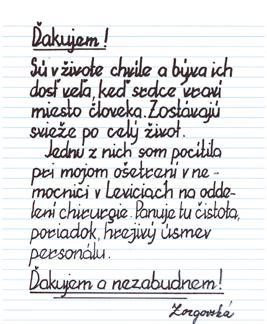 Ďakujem!
Sú v živote chvíle a býva ich
dosť veľa, keď srdce vraví
miesto človeka. Zostávajú
svieže po celý život.
Jednu z nich som pocítila
pri mojom ošetrení v ne-
mocnici v Leviciach na odde-
lení chirurgie. Panuje tu čistota,
poriadok, hrejivý úsmev
personálu.
Ďakujem a nezabudnem!
Zorgovská